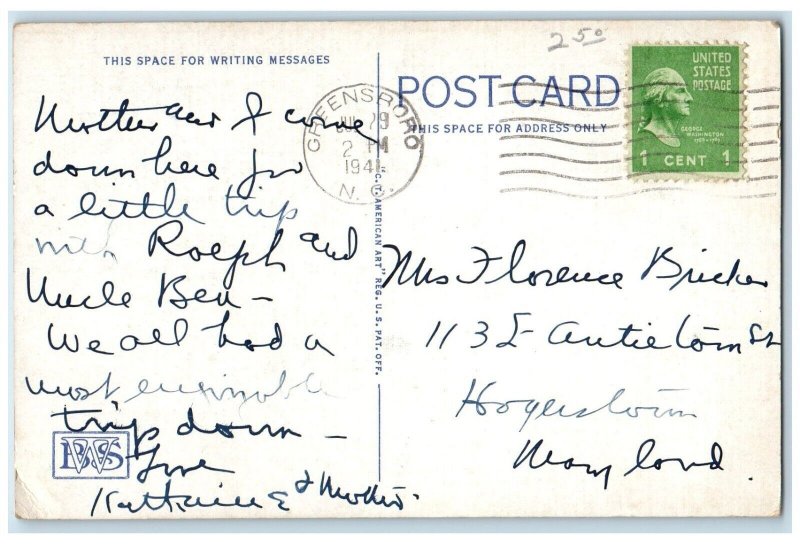 2 50
THIS SPACE FOR WRITING MESSAGES
POST CARD
THIS SPACE FOR ADDRESS ONLY
GREENSBORO
2 PM
1941
N.C.
UNITED
STATES
POSTAGE
GEORGE
WASHINGTON
1 CENT 1
Mother and I came
down here for
a little trip
with Ralph and
Uncle Ben –
We all had a
most enjoyable
trip down –
Love
Katharine & Mother.
"C.T. AMERICAN ART" REG. U.S. PAT. OFF.
Mrs Florence Bricker
113 E Antietam St
Hagerstown
Maryland.